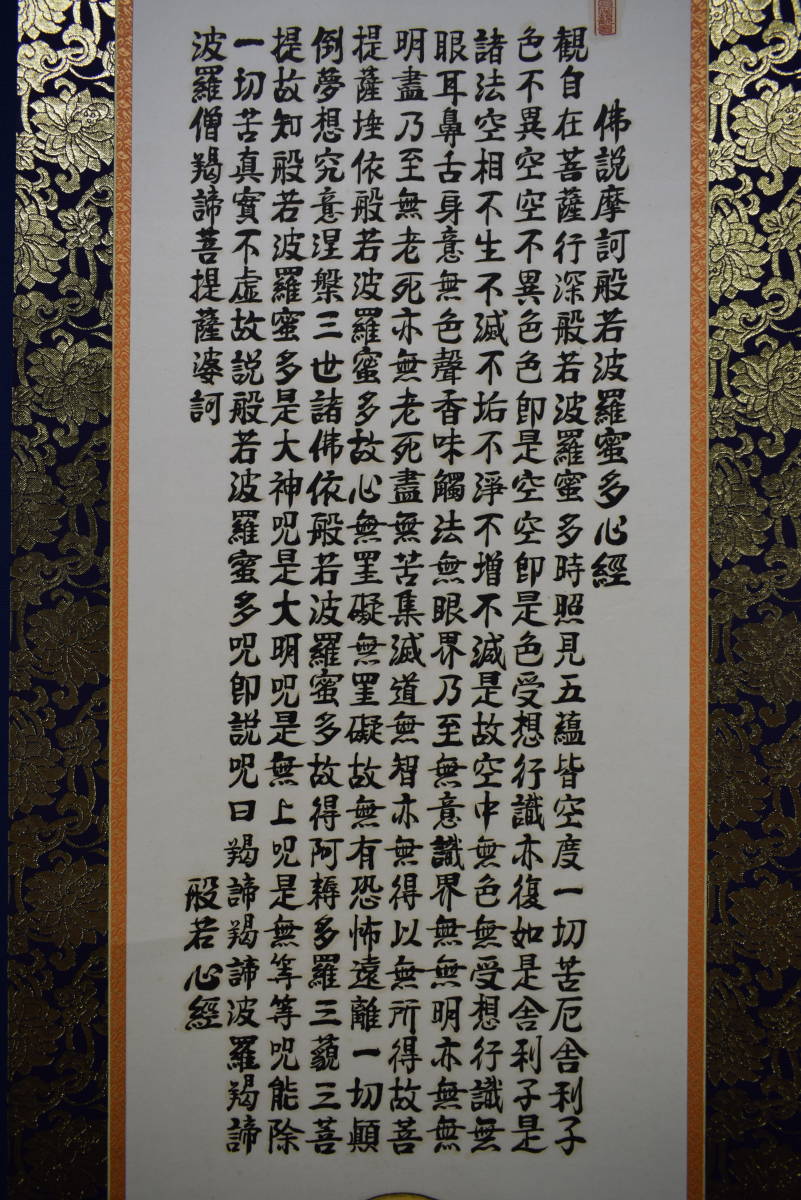 佛說摩訶般若波羅蜜多心經
観自在菩薩行深般若波羅蜜多時照見五蘊皆空度一切苦厄舎利子
色不異空空不異色色即是空空即是色受想行識亦復如是舎利子是
諸法空相不生不滅不垢不淨不増不減是故空中無色無受想行識無
眼耳鼻舌身意無色聲香味觸法無眼界乃至無意識界無無明亦無無
明盡乃至無老死亦無老死盡無苦集滅道無智亦無得以無所得故菩
提薩埵依般若波羅蜜多故心無罣礙無罣礙故無有恐怖遠離一切顛
倒夢想究意涅槃三世諸佛依般若波羅蜜多故得阿耨多羅三藐三菩
提故知般若波羅蜜多是大神呪是大明呪是無上呪是無等等呪能除
一切苦真實不虚故説般若波羅蜜多呪即説呪曰羯諦羯諦波羅羯諦
波羅僧羯諦菩提薩婆訶
般若心經